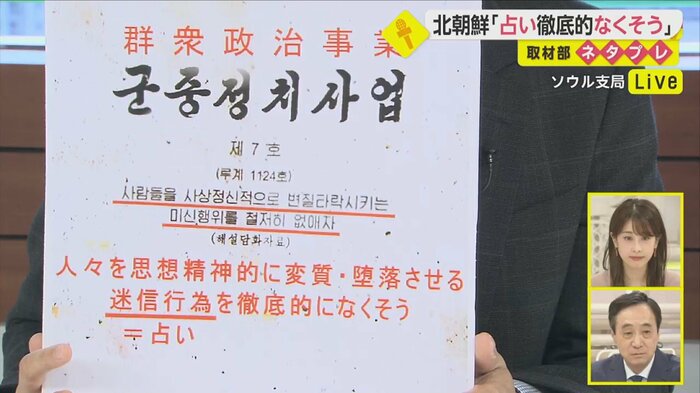 北朝鮮「占い徹底的なくそう」
取材部 ネタプレ
ソウル支局 Live
群衆政治事業
군중정치사업
제 7 호
(루계 1124호)
사람들을 사상정신적으로 변질타락시키는
미신행위를 철저히 없애자
(해설담화자료)
人々を思想精神的に変質・堕落させる
迷信行為を徹底的になくそう
＝占い